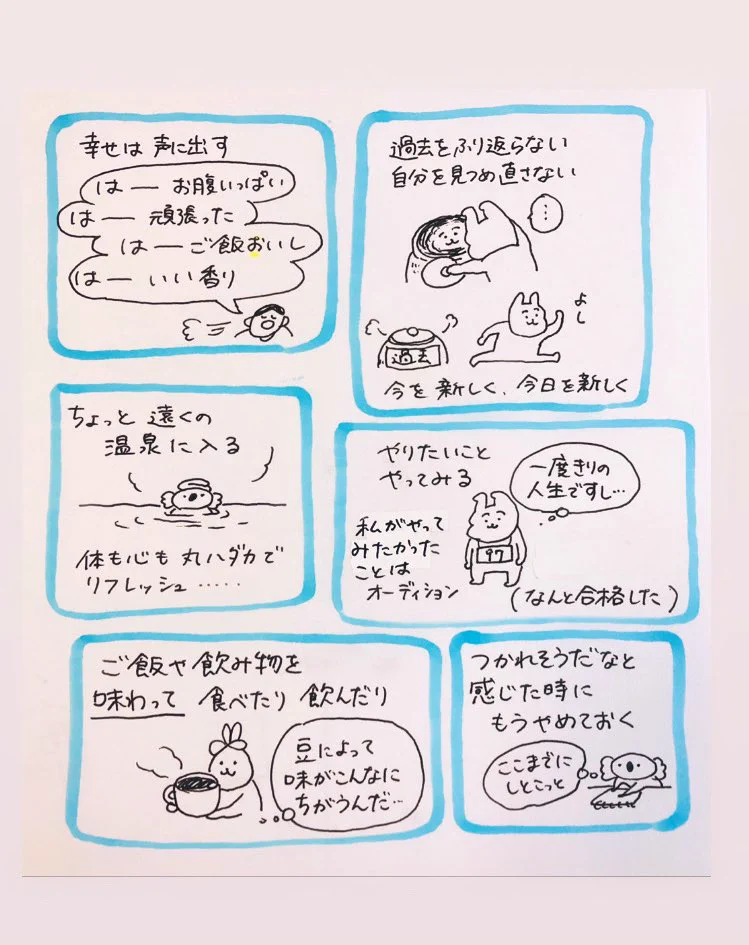 幸せは 声に出す
はー お腹いっぱい
はー 頑張った
はーご飯おいし
はー いい香り
過去をふり返らない
自分を見つめ直さない
…
よし
過去
今を新しく、今日を新しく
ちょっと遠くの
温泉に入る
体も心も丸ハダカで
リフレッシュ……
やりたいこと
やってみる
一度きりの
人生ですし…
私がやって
みたかった
ことは
オーディション
97
(なんと合格した)
ご飯や飲み物を
味わって 食べたり 飲んだり
豆によって
味がこんなに
ちがうんだ…
つかれそうだなと
感じた時に
もうやめておく
ここまでに
しとこっと